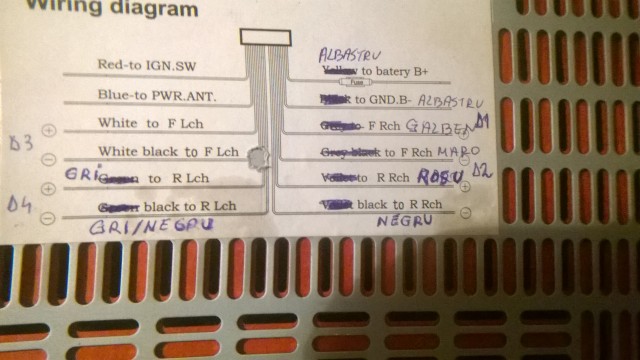 Wiring diagram
ALBASTRU
Red-to IGN.SW
Yellow to batery B+
Fuse
Blue-to PWR.ANT.
Black to GND.B- ALBASTRU
White to F Lch
to F Rch GALBEN D1
D3
White black to F Lch
Grey black to F Rch MARO
GRI Green to R Lch
Violet to R Rch ROSU D2
D4
Green black to R Lch
Violet black to R Rch
GRI/NEGRU
NEGRU